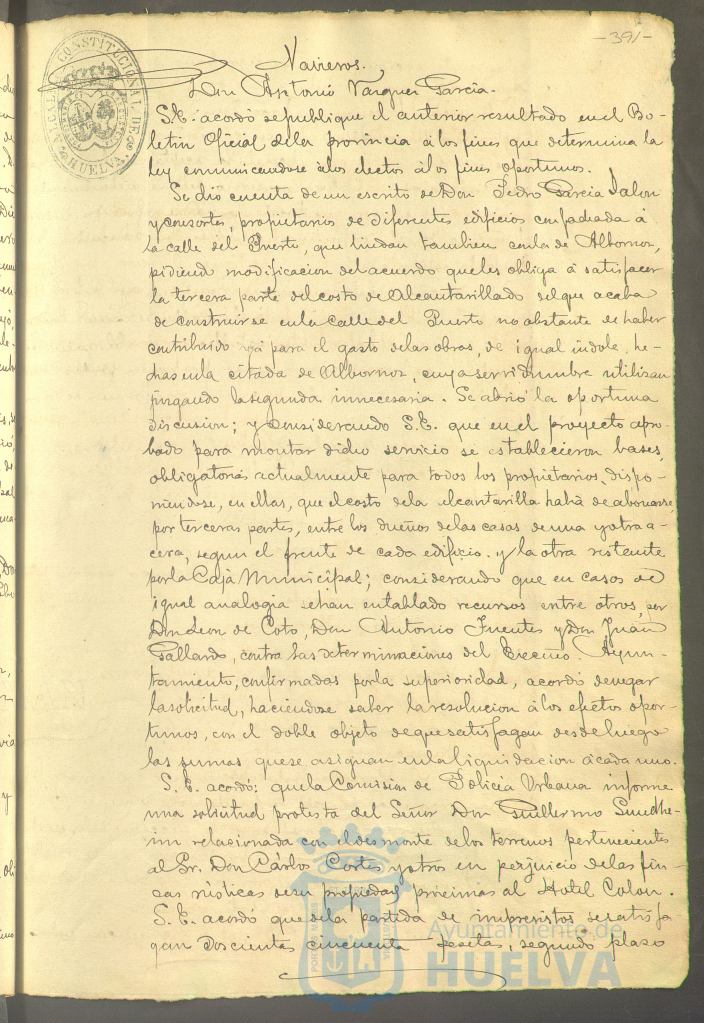 -391-
ALCALDIA CONSTITUCIONAL DE HUELVA
Navieros.
Don Antonio Vazquez Garcia.
S.E. acordó se publique el anterior resultado en el Bo-
letin Oficial dela provincia á los fines que determina la
ley comunicandose álos electos álos fines oportunos.
Se dió cuenta de un escrito de Don Pedro Garcia Jalon
y consortes, propietarios de diferentes edificios con fachada á
la calle del Puerto, que lindan tambien conla de Albornoz,
pidiend modificacion del acuerdo queles obliga á satisfacer
la tercera parte del costo de Alcantarillado delque acaba
de construirse enla Calle del Puerto no obstante de haber
contribuido para el gasto delas obras, de igual indole, he-
chas enla citada de Albornoz, cuya servidumbre utilizan
juzgando la segunda innecesaria. Se abrió la oportuna
discusion; y considerando S.E. que en el proyecto apro-
bado para montar dicho servicio se establecieron bases,
obligatorias actualmente para todos los propietarios, dispo-
niendose, en ellas, que el costo dela alcantarilla habia de abonarse
por terceras partes, entre los dueños delas casas de una y otra a-
cera, segun el frente de cada edificio. y la otra restante
porla Caja Municipal; considerando que en casos de
igual analogia sehan entablado recursos entre otros, por
Don Leon de Coto, Don Antonio Fuentes y Don Juan
Gallardo, contra las determinaciones del Excmo. Ayun-
tamiento, confirmadas porla superioridad, acordó denegar
la solicitud, haciendose saber la resolucion álos efectos opor-
tunos, con el doble objeto de que satisfagan desde luego
las sumas que se asignan enla liquidacion á cada uno.
S.E. acordó: quela Comision de Policia Urbana informe
una solicitud protesta del Señor Don Guillermo Sundhe-
im relacionada con el desmonte delos terrenos pertenecientes
al Sr. Don Cárlos Cortes y otros en perjuicio delas fin-
cas rústicas desu propiedad, próximas al Hotel Colon.
S.E. acordó que dela partida de imprevistos se satisfa
gan doscientas cincuenta pesetas, segundo plazo
Ayuntamiento de
HUELVA